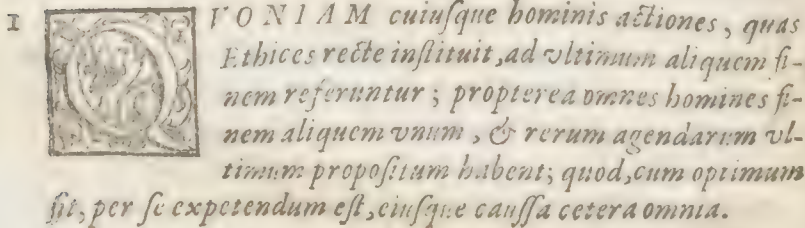 1 QVONIAM cuiuſque hominis actiones, quas
Ethices recte inſtituit, ad vltimum aliquem fi-
nem referuntur; propterea omnes homines fi-
nem aliquem vnum, & rerum agendarum vl-
timum propoſitum habent; quod, cum optimum
ſit, per ſe expetendum eſt, eiuſque cauſſa cetera omnia.